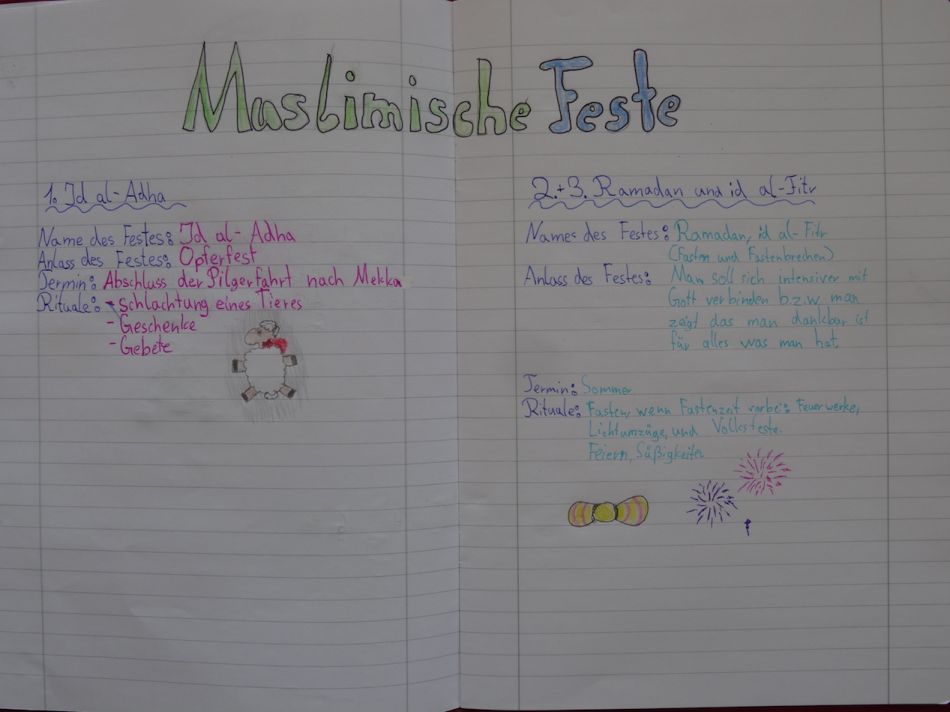 Muslimische Feste
1. Id al-Adha
Name des Festes: Id al-Adha
Anlass des Festes: Opferfest
Termin: Abschluss der Pilgerfahrt nach Mekka
Rituale: - Schlachtung eines Tieres
- Geschenke
- Gebete
2.+3. Ramadan und id al-Fitr
Names des Festes: Ramadan, id al-Fitr
(Fasten und Fastenbrechen)
Anlass des Festes: Man soll sich intensiver mit
Gott verbinden b.z.w. man
zeigt das man dankbar ist
für alles was man hat
Termin: Sommer
Rituale: Fasten, wenn Fastenzeit vorbei: Feuerwerke,
Lichtumzüge, und Volksfeste.
Feiern, Süßigkeiten